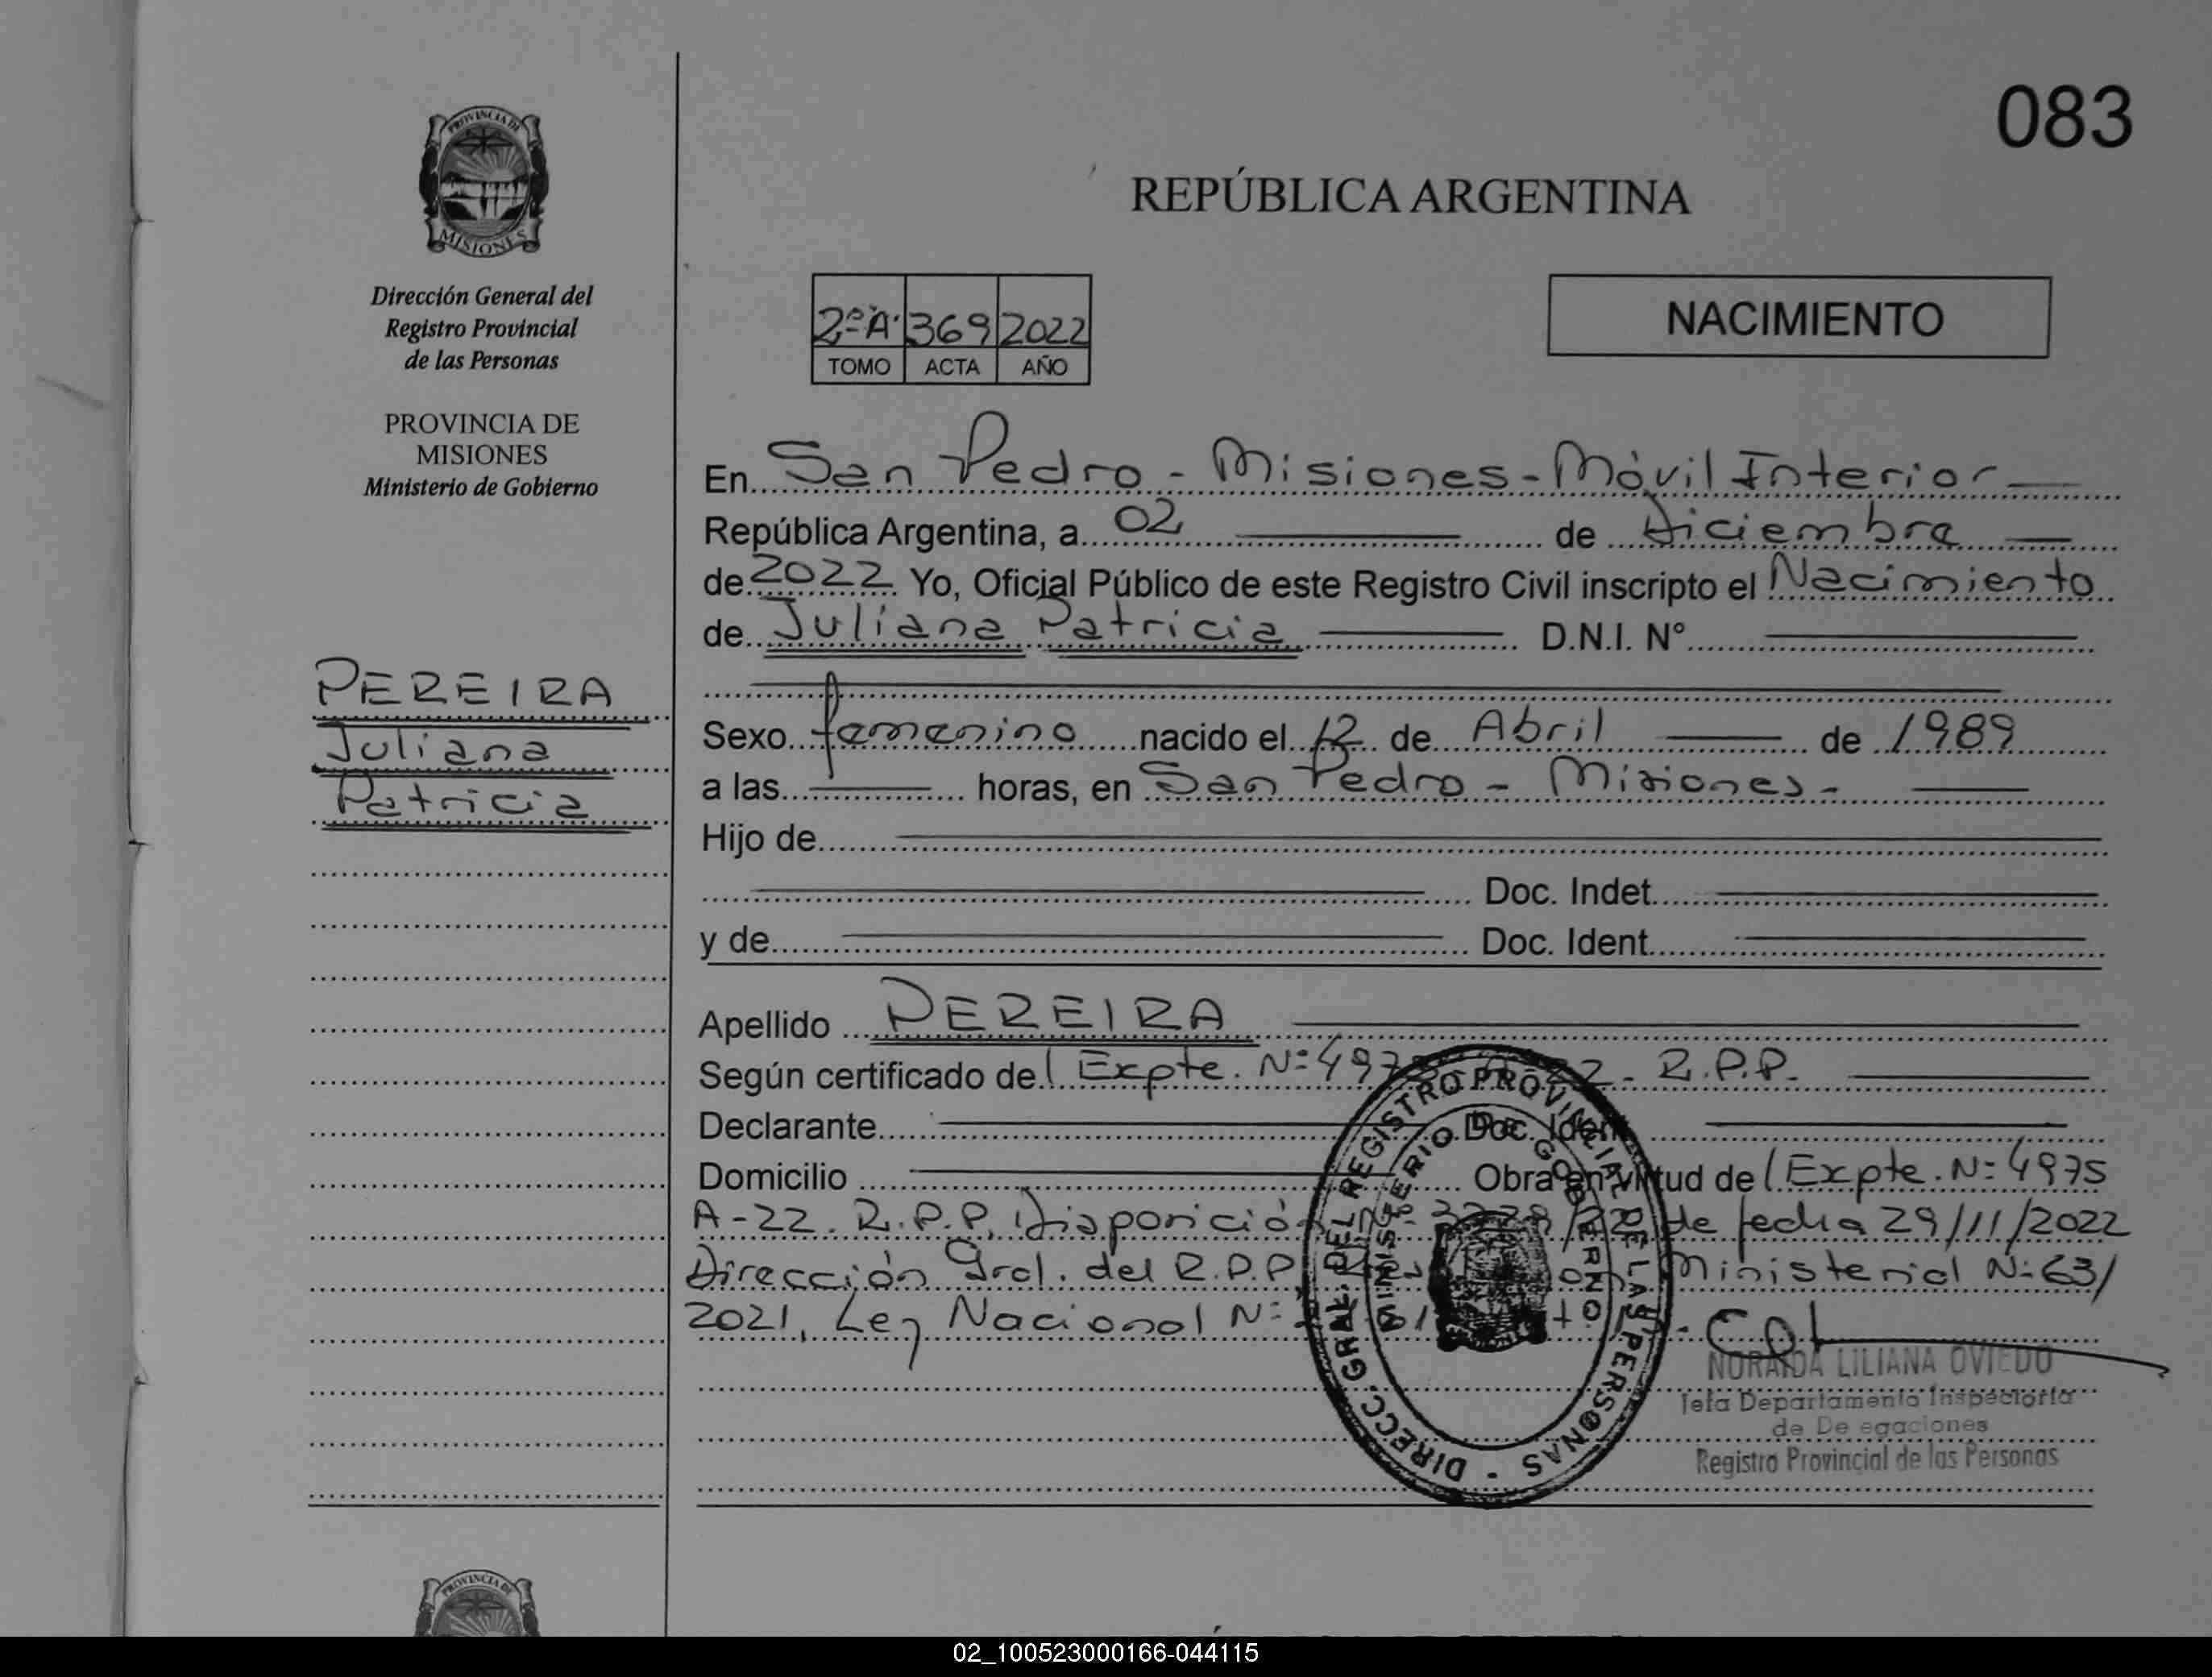 083
PROVINCIA DE
MISIONES
Dirección General del
Registro Provincial
de las Personas
PROVINCIA DE
MISIONES
Ministerio de Gobierno
PEREIRA
Juliana
Patricia
REPÚBLICA ARGENTINA
2º"A" 369 2022
TOMO ACTA AÑO
NACIMIENTO
En San Pedro - Misiones - Móvil Interior
República Argentina, a 02 de Diciembre
de 2022 Yo, Oficial Público de este Registro Civil inscripto el Nacimiento
de Juliana Patricia D.N.I. Nº
Sexo femenino nacido el 12 de Abril de 1989
a las horas, en San Pedro - Misiones -
Hijo de
Doc. Indet.
y de Doc. Ident.
Apellido PEREIRA
Según certificado del Expte. Nº R.P.P.
Declarante Doc. Ident
Domicilio Obra en vitud del Expte. Nº 4975
A-22. R.P.P, Disposición de fecha 29/11/2022
Dirección Gral. del R.P.P. Ministerial Nº 63/
2021, Ley Nacional Nº
DIRECC. GRAL. DEL REGISTRO PROVINCIAL DE LAS PERSONAS
MINISTERIO DE GOBIERNO
NORAIDA LILIANA OVIEDO
Jefa Departamento Inspectoría
de Delegaciones
Registro Provincial de las Personas
PROVINCIA DE
02_100523000166-044115